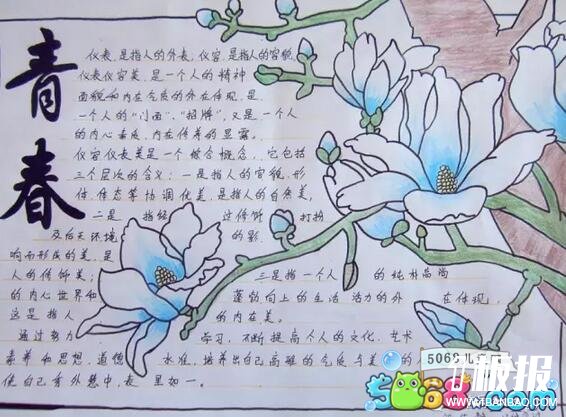 青春
仪表,是指人的外表,仪容,是指人的容貌
仪表仪容美,是一个人的精神
面貌和内在气质的外在体现,是
一个人的“门面”、“招牌”,又是一个人
的内心素质,内在修养的显露。
仪容仪表美是一个综合概念,它包括
三个层次的含义:一是指人的容貌、形
体、体态等协调优美,是指人的自然美,
二是 指经 过修饰 打扮
及后天环境 的影
响而形成的美,是
人的修饰美; 三是指一个人 的纯朴品尚
的内心世界和 蓬勃向上的生活 活力的外 在体现,
这是指人 的内在美。
通过努力 学习,不断提高个人的文化、艺术
素养和思想、道德 水准,培养出自己高雅的气质与美
使自己秀外慧中,表 里如一。
5068儿
极报
5068.com
WWW.TBANBAO.COM